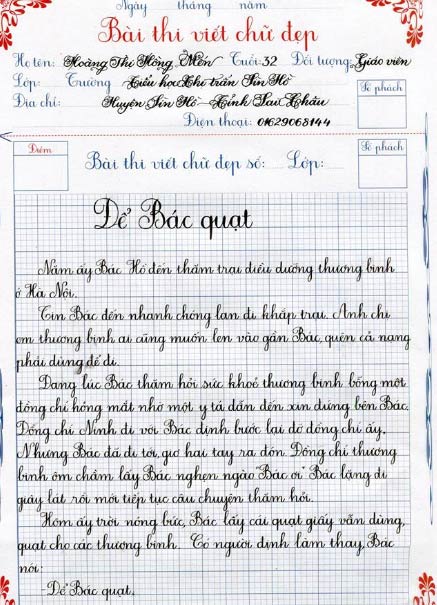 Ngày tháng năm
Bài thi viết chữ đẹp
Họ tên: Hoàng Thị Hồng Mến Tuổi: 32 Đối tượng: Giáo viên
Lớp: Trường Tiểu học Thị trấn Sìn Hồ
Địa chỉ: Huyện Sìn Hồ - Tỉnh Lai Châu
Số phách
Điện thoại: 01629068144
Điểm
Bài thi viết chữ đẹp số: Lớp:
Số phách
Để Bác quạt
Năm ấy Bác Hồ đến thăm trại điều dưỡng thương binh
ở Hà Nội.
Tin Bác đến nhanh chóng lan đi khắp trại. Anh chị
em thương binh ai cũng muốn len vào gần Bác, quên cả nạng
phải dùng để đi.
Đang lúc Bác thăm hỏi sức khoẻ thương binh bỗng một
đồng chí hỏng mắt nhờ một y tá dẫn đến xin đứng bên Bác.
Đồng chí Ninh đi với Bác định bước lại đỡ đồng chí ấy.
Nhưng Bác đã đi tới, giơ hai tay ra đón. Đồng chí thương
binh ôm chầm lấy Bác nghẹn ngào "Bác ơi" Bác lặng đi
giây lát rồi mới tiếp tục câu chuyện thăm hỏi.
Hôm ấy trời nóng bức, Bác lấy cái quạt giấy vẫn dùng,
quạt cho các thương binh. Có người định làm thay, Bác
nói:
-Để Bác quạt.